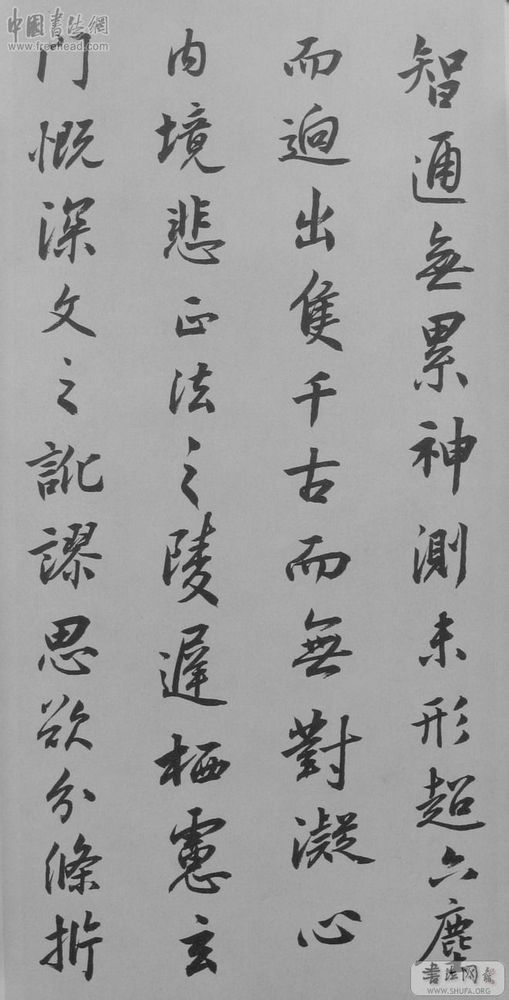 智通無累神測未形超六塵
而迥出隻千古而無對凝心
內境悲正法之陵遲栖慮玄
門慨深文之訛謬思欲分條析
中国書法網
www.freehead.com
書法网
WWW.SHUFA.ORG